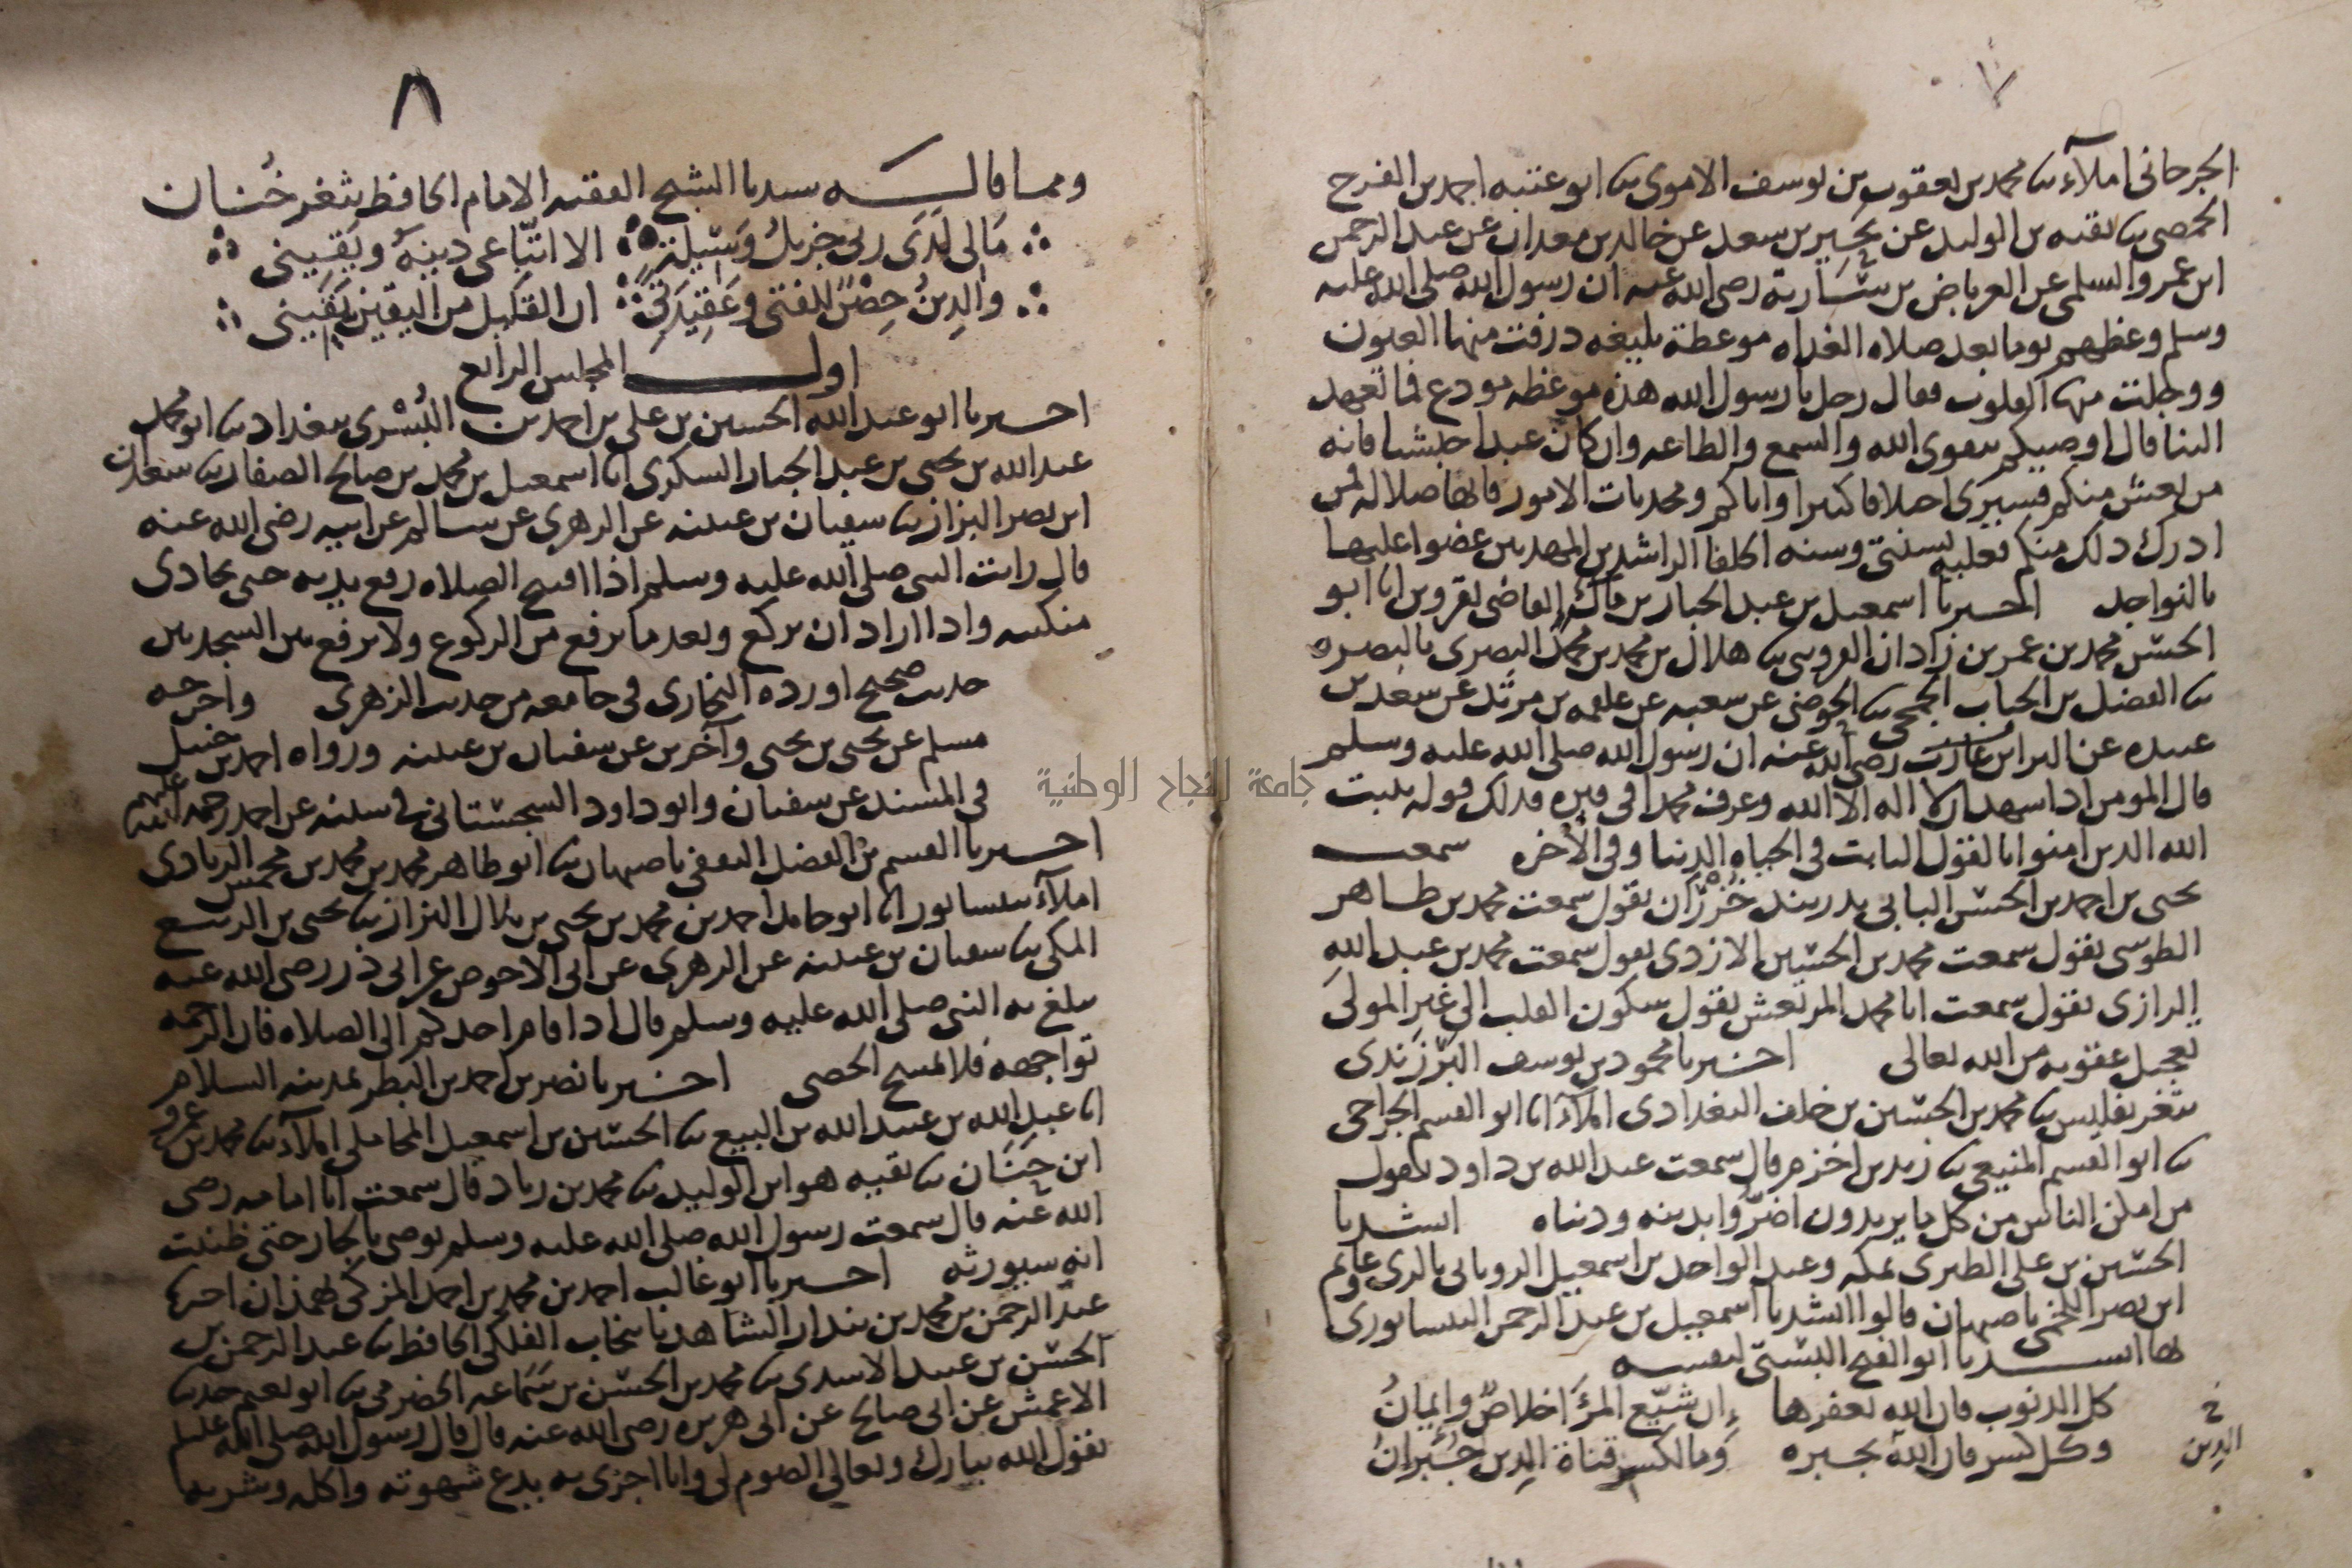 الجرجانى املآء ثنا محمد بن يعقوب بن يوسف الاموى ثنا ابو عتبه احمد بن الفرج
الحمصى ثنا بقيه بن الوليد عن بحير بن سعد عن خالد بن معدان عن عبد الرحمن
ابن عمرو السلمى عن العرباض بن سارية رضى الله عنه ان رسول الله صلى الله عليه
وسلم وعظهم يوما بعد صلاه الغداه موعظة بليغه ذرفت منها العيون
ووجلت منها القلوب فقال رجل يا رسول الله هذه موعظه مودع فما تعهد
الينا قال اوصيكم بتقوى الله والسمع والطاعه وان كان عبدا حبشيا فانه
من يعش منكم فسيرى اختلافا كثيرا واياكم ومحدثات الامور فانها ضلاله فمن
ادرك ذلك منكم فعليه بسنتى وسنه الخلفا الراشدين المهديين عضوا عليها
بالنواجذ اخبرنا اسمعيل بن عبد الجبار بن ماك القاضى بقزوين انا ابو
الحسن محمد بن عمر بن زاذان القزوينى ثنا هلال بن محمد بن محمد البصرى بالبصره
ثنا الفضل بن الحباب الجمحى ثنا الحوضى عن شعبه عن علقمه بن مرثد عن سعد بن
عبيده عن البرا بن عازب رضى الله عنه ان رسول الله صلى الله عليه وسلم
قال المومن اذا شهد ان لا اله الا الله وعرف محمدا فى قبره فذلك قوله يثبت
الله الذين امنوا بالقول الثابت فى الحياه الدنيا وفى الآخره سمعت
يحيى بن احمد بن الحسين البابى بدربند خزران يقول سمعت محمد بن طاهر
الطوسى يقول سمعت محمد بن الحسين الازدى يقول سمعت محمد بن عبد الله
الرازى يقول سمعت ابا محمد المرتعش يقول سكون القلب الى غير المولى
تعجيل عقوبه من الله تعالى اخبرنا محمود بن يوسف البرزندى
بثغر تفليس ثنا محمد بن الحسين بن خلف البغدادى املآء انا ابو القسم الجراحى
ثنا ابو القسم المنيعى ثنا زيد بن اخزم قال سمعت عبد الله بن داود يقول
من امكن الناس من كل ما يريدون اضروا بدينه ودنياه انشدنا
الحسين بن على الطبرى بمكه وعبد الواحد بن اسمعيل الرويانى بالرى وغانم
ابن نصر اللخمى باصبهان قالوا انشدنا اسمعيل بن عبد الرحمن النيسابورى
بها انشدنا ابو الفتح البستى لنفسه
كل الذنوب فان الله يغفرها ان شيع المرء اخلاص وايمان
وكل كسر فان الله يجبره وما لكسر قناة الدين جبران
الدين
٨
ومما قاله سيدنا الشيخ الفقيه الامام الحافظ بثغر خنان
مالى لدى ربى جزيل وسيلة الا اتباعى دينه ويقينى
والدين حصن للفتى وعقيدتى ان القليل من اليقين يقينى
اول المجلس الرابع
اخبرنا ابو عبد الله الحسين بن على بن احمد بن البسرى ببغداد ثنا ابو محمد
عبد الله بن يحيى بن عبد الجبار السكرى انا اسمعيل بن محمد بن صالح الصفار ثنا سعدان
ابن نصر البزاز ثنا سفيان بن عيينه عن الزهرى عن سالم عن ابيه رضى الله عنه
قال رايت النبى صلى الله عليه وسلم اذا افتتح الصلاه رفع يديه حتى يحاذى
منكبيه واذا اراد ان يركع وبعد ما يرفع من الركوع ولا يرفع بين السجدتين
حديث صحيح اورده البخارى فى جامعه من حديث الزهرى واخرجه
مسلم عن يحيى بن يحيى وآخرين عن سفيان بن عيينه ورواه احمد بن حنبل
فى المسند عن سفيان وابو داود السجستانى فى سننه عن احمد رحمه الله عليهم
اخبرنا القسم بن الفضل الثقفى باصبهان ثنا ابو طاهر محمد بن محمد بن محمش الزيادى
املآء بنيسابور انا ابو حامد احمد بن محمد بن يحيى بن بلال البزاز ثنا يحيى بن الربيع
المكى ثنا سفيان بن عيينه عن الزهرى عن ابى الاحوص عن ابى ذر رضى الله عنه
يبلغ به النبى صلى الله عليه وسلم قال اذا قام احدكم الى الصلاه فان الرحمه
تواجهه فلا يمسح الحصى اخبرنا نصر بن احمد بن البطر بمدينه السلام
انا عبد الله بن عبيد الله بن البيع ثنا الحسين بن اسمعيل المحاملى املآء ثنا محمد بن عمرو
ابن حنان ثنا بقيه هو ابن الوليد ثنا محمد بن زياد قال سمعت ابا امامه رضى
الله عنه قال سمعت رسول الله صلى الله عليه وسلم يوصى بالجار حتى ظننت
انه سيورثه اخبرنا ابو غالب احمد بن محمد بن احمد المزكى بهمذان اخبرنا
عبد الرحمن بن محمد بن بندار الشاهد بانتخاب الفلكى الحافظ ثنا عبد الرحمن بن
الحسن بن عبيد الاسدى ثنا محمد بن الحسن بن سماعه الحضرمى ثنا ابو نعيم حدثنا
الاعمش عن ابى صالح عن ابى هريره رضى الله عنه قال قال رسول الله صلى الله عليه وسلم
يقول الله تبارك وتعالى الصوم لى وانا اجزى به يدع شهوته واكله وشربه
جامعة النجاح الوطنية